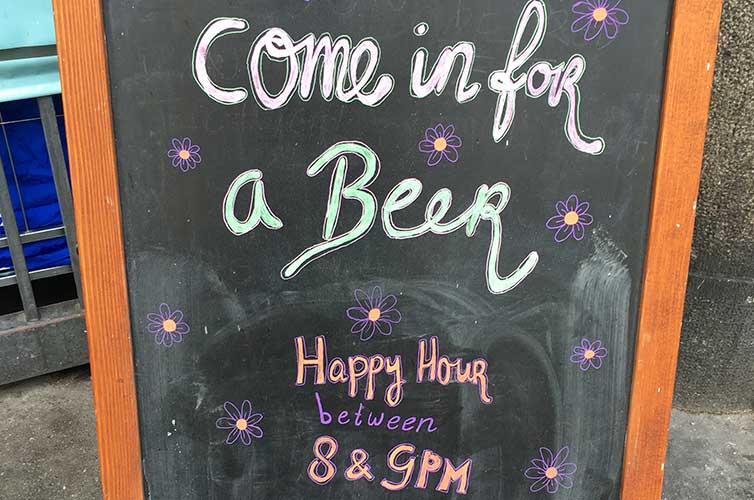 Come in for
a Beer
Happy Hour
between
8 & 9PM